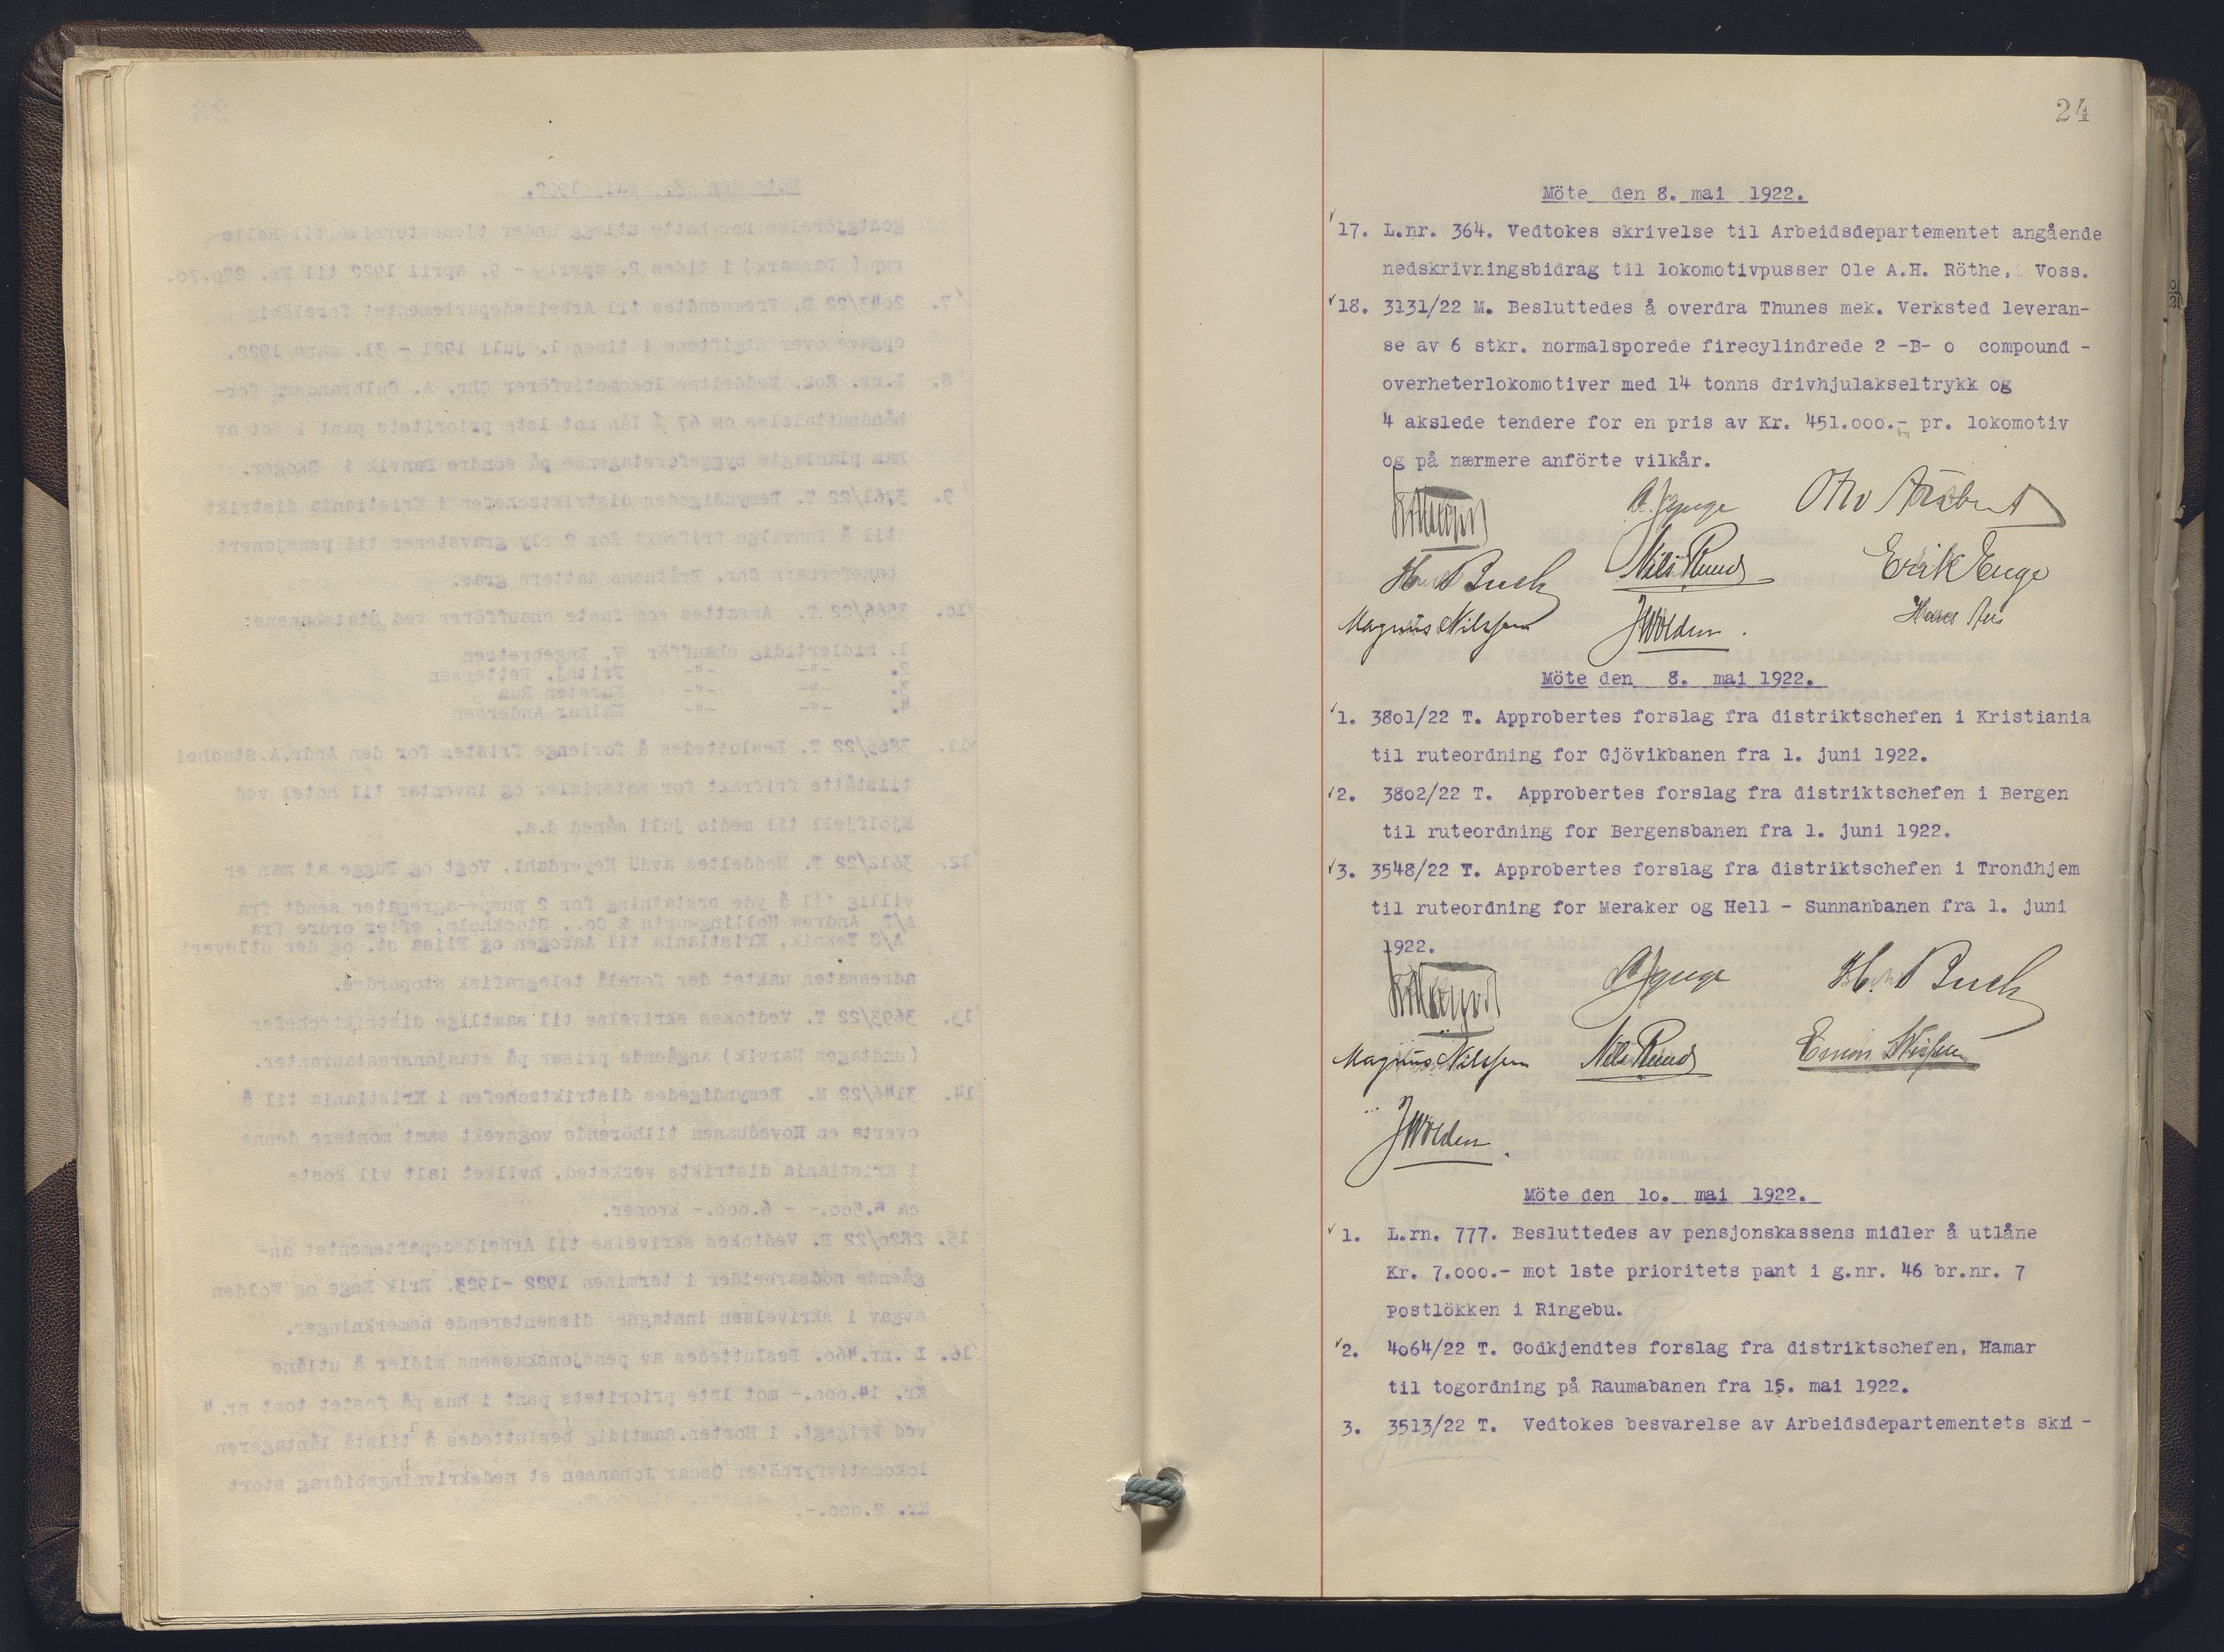 24
Möte den 8. mai 1922.
17. L.nr. 364. Vedtokes skrivelse til Arbeidsdepartementet angående
nedskrivningsbidrag til lokomotivpusser Ole A.H. Röthe, Voss.
18. 3131/22 M. Besluttedes å overdra Thunes mek. Verksted leveran-
se av 6 stkr. normalsporede firecylindrede 2 -B- o compound -
overheterlokomotiver med 14 tonns drivhjulakseltrykk og
4 akslede tendere for en pris av Kr. 451.000.- pr. lokomotiv
og på nærmere anförte vilkår.
Otto Aubert
Buch Nils Ruud Erik Enge
Magnus Nilssen JWolden.
Möte den 8. mai 1922.
1. 3801/22 T. Approbertes forslag fra distriktschefen i Kristiania
til ruteordning for Gjövikbanen fra 1. juni 1922.
2. 3802/22 T. Approbertes forslag fra distriktschefen i Bergen
til ruteordning for Bergensbanen fra 1. juni 1922.
3. 3548/22 T. Approbertes forslag fra distriktschefen i Trondhjem
til ruteordning for Meraker og Hell - Sunnanbanen fra 1. juni
1922.
Buch
Magnus Nilssen Nils Ruud
JWolden.
Möte den 10. mai 1922.
1. L.rn. 777. Besluttedes av pensjonskassens midler å utlåne
Kr. 7.000.- mot 1ste prioritets pant i g.nr. 46 br.nr. 7
Postlökken i Ringebu.
2. 4064/22 T. Godkjendtes forslag fra distriktschefen, Hamar
til togordning på Raumabanen fra 15. mai 1922.
3. 3513/22 T. Vedtokes besvarelse av Arbeidsdepartementets skri -